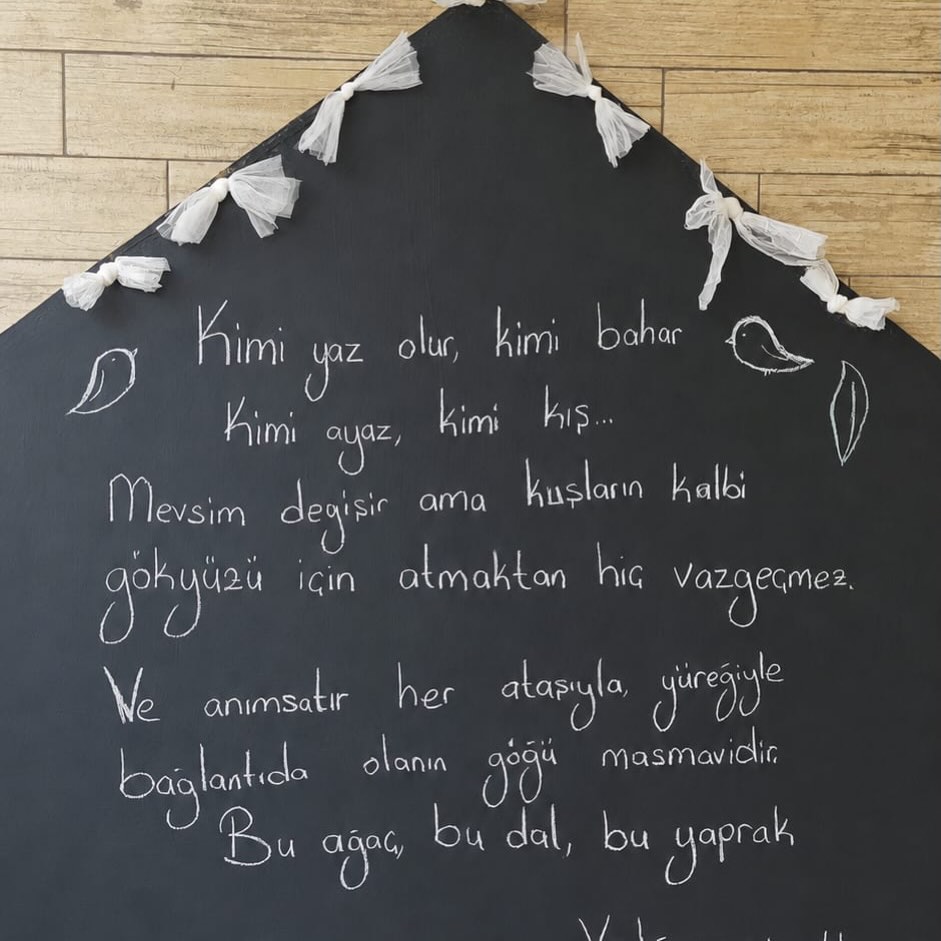 Kimi yaz olur, kimi bahar
Kimi ayaz, kimi kış...
Mevsim degişir ama kuşların kalbi
gökyüzü için atmaktan hiç vazgeçmez.
Ve anımsatır her ataşıyla, yüreğiyle
bağlantıda olanın göğü masmavidir.
Bu ağaç, bu dal, bu yaprak